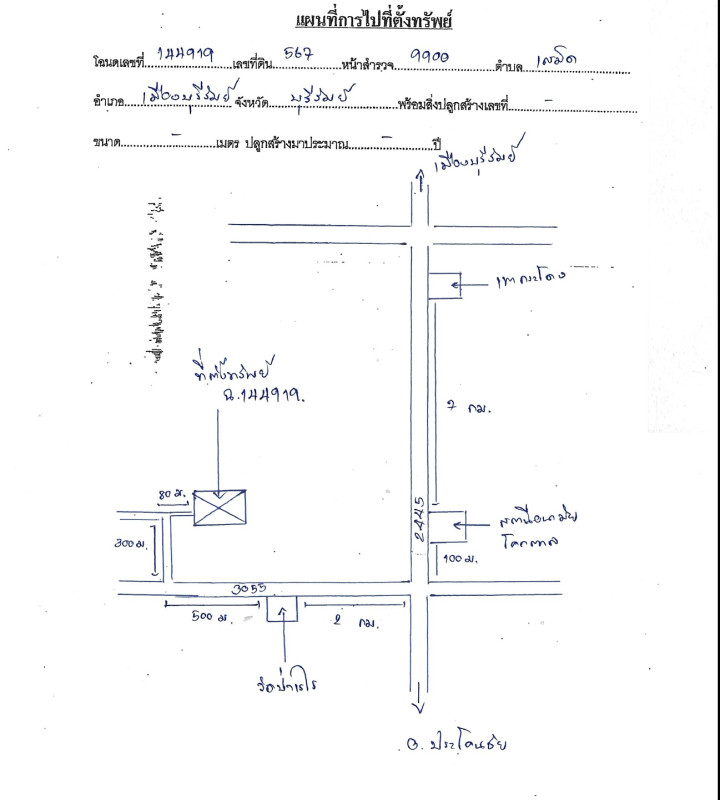 แผนที่การไปที่ตั้งทรัพย์
โฉนดเลขที่ 144919 เลขที่ดิน 567 หน้าสำรวจ 9900 ตำบล เสม็ด
อำเภอ เมืองบุรีรัมย์ จังหวัด บุรีรัมย์ พร้อมสิ่งปลูกสร้างเลขที่ -
ขนาด - เมตร ปลูกสร้างมาประมาณ - ปี
เมืองบุรีรัมย์
เขากระโดง
ที่ตั้งทรัพย์
ฉ.144919.
7 กม.
80 ม.
2445
สถานีอนามัย
โคกตาล
300 ม.
100 ม.
3055
500 ม.
2 กม.
อ. ประโคนชัย